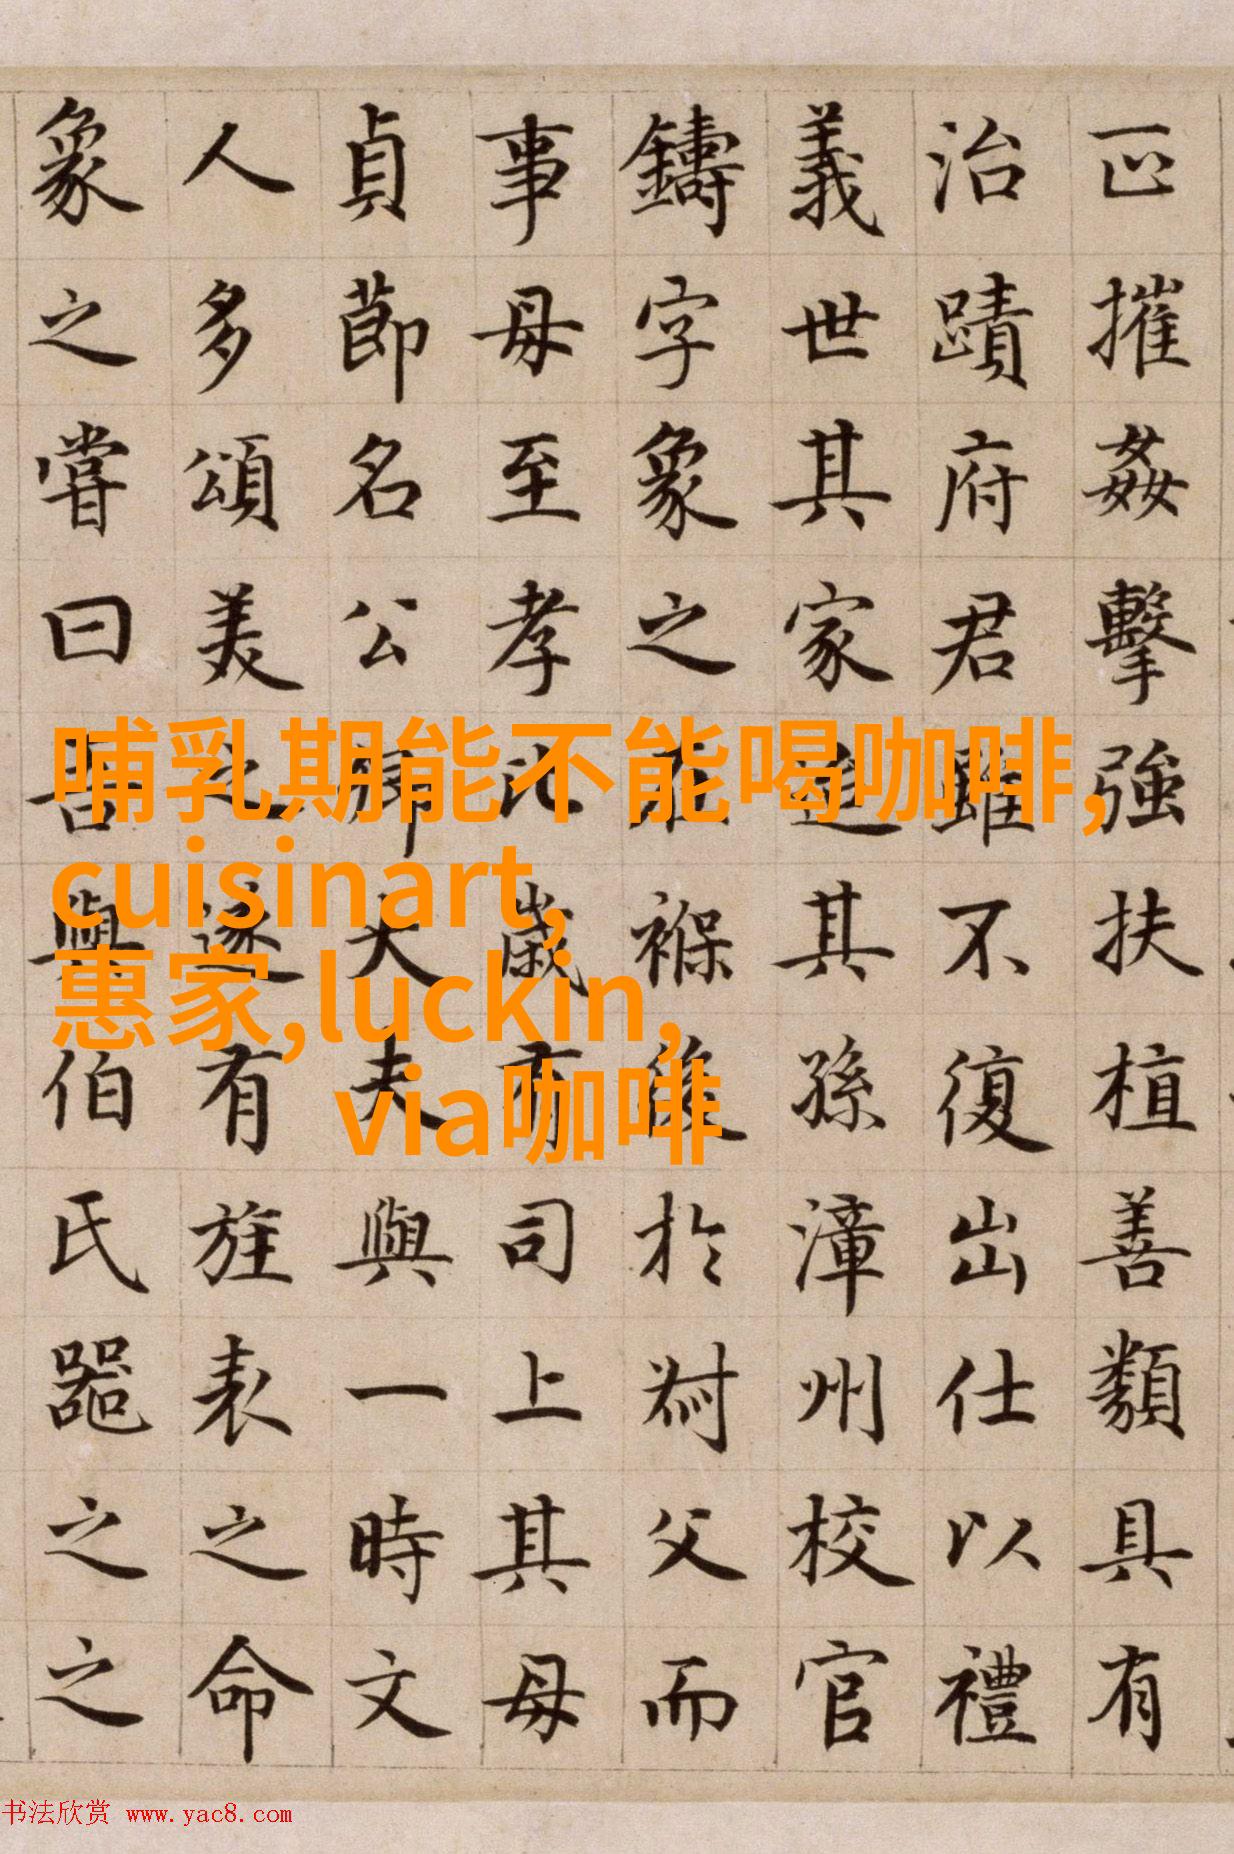 正摧姦擊強扶植善類具有
治蹟府君雖不復出仕以禮
義世其家其孫漳州校官
鑄字象之在褓於父而
事母至孝比歲有司上其母
貞節名公卿大夫與一時文
人多頌美之遂有旌表之命
象之嘗曰吾與伯氏器之之
哺乳期能不能喝咖啡,
cuisinart,
惠家,luckin,
via咖啡
书法欣赏 www.yac8.com